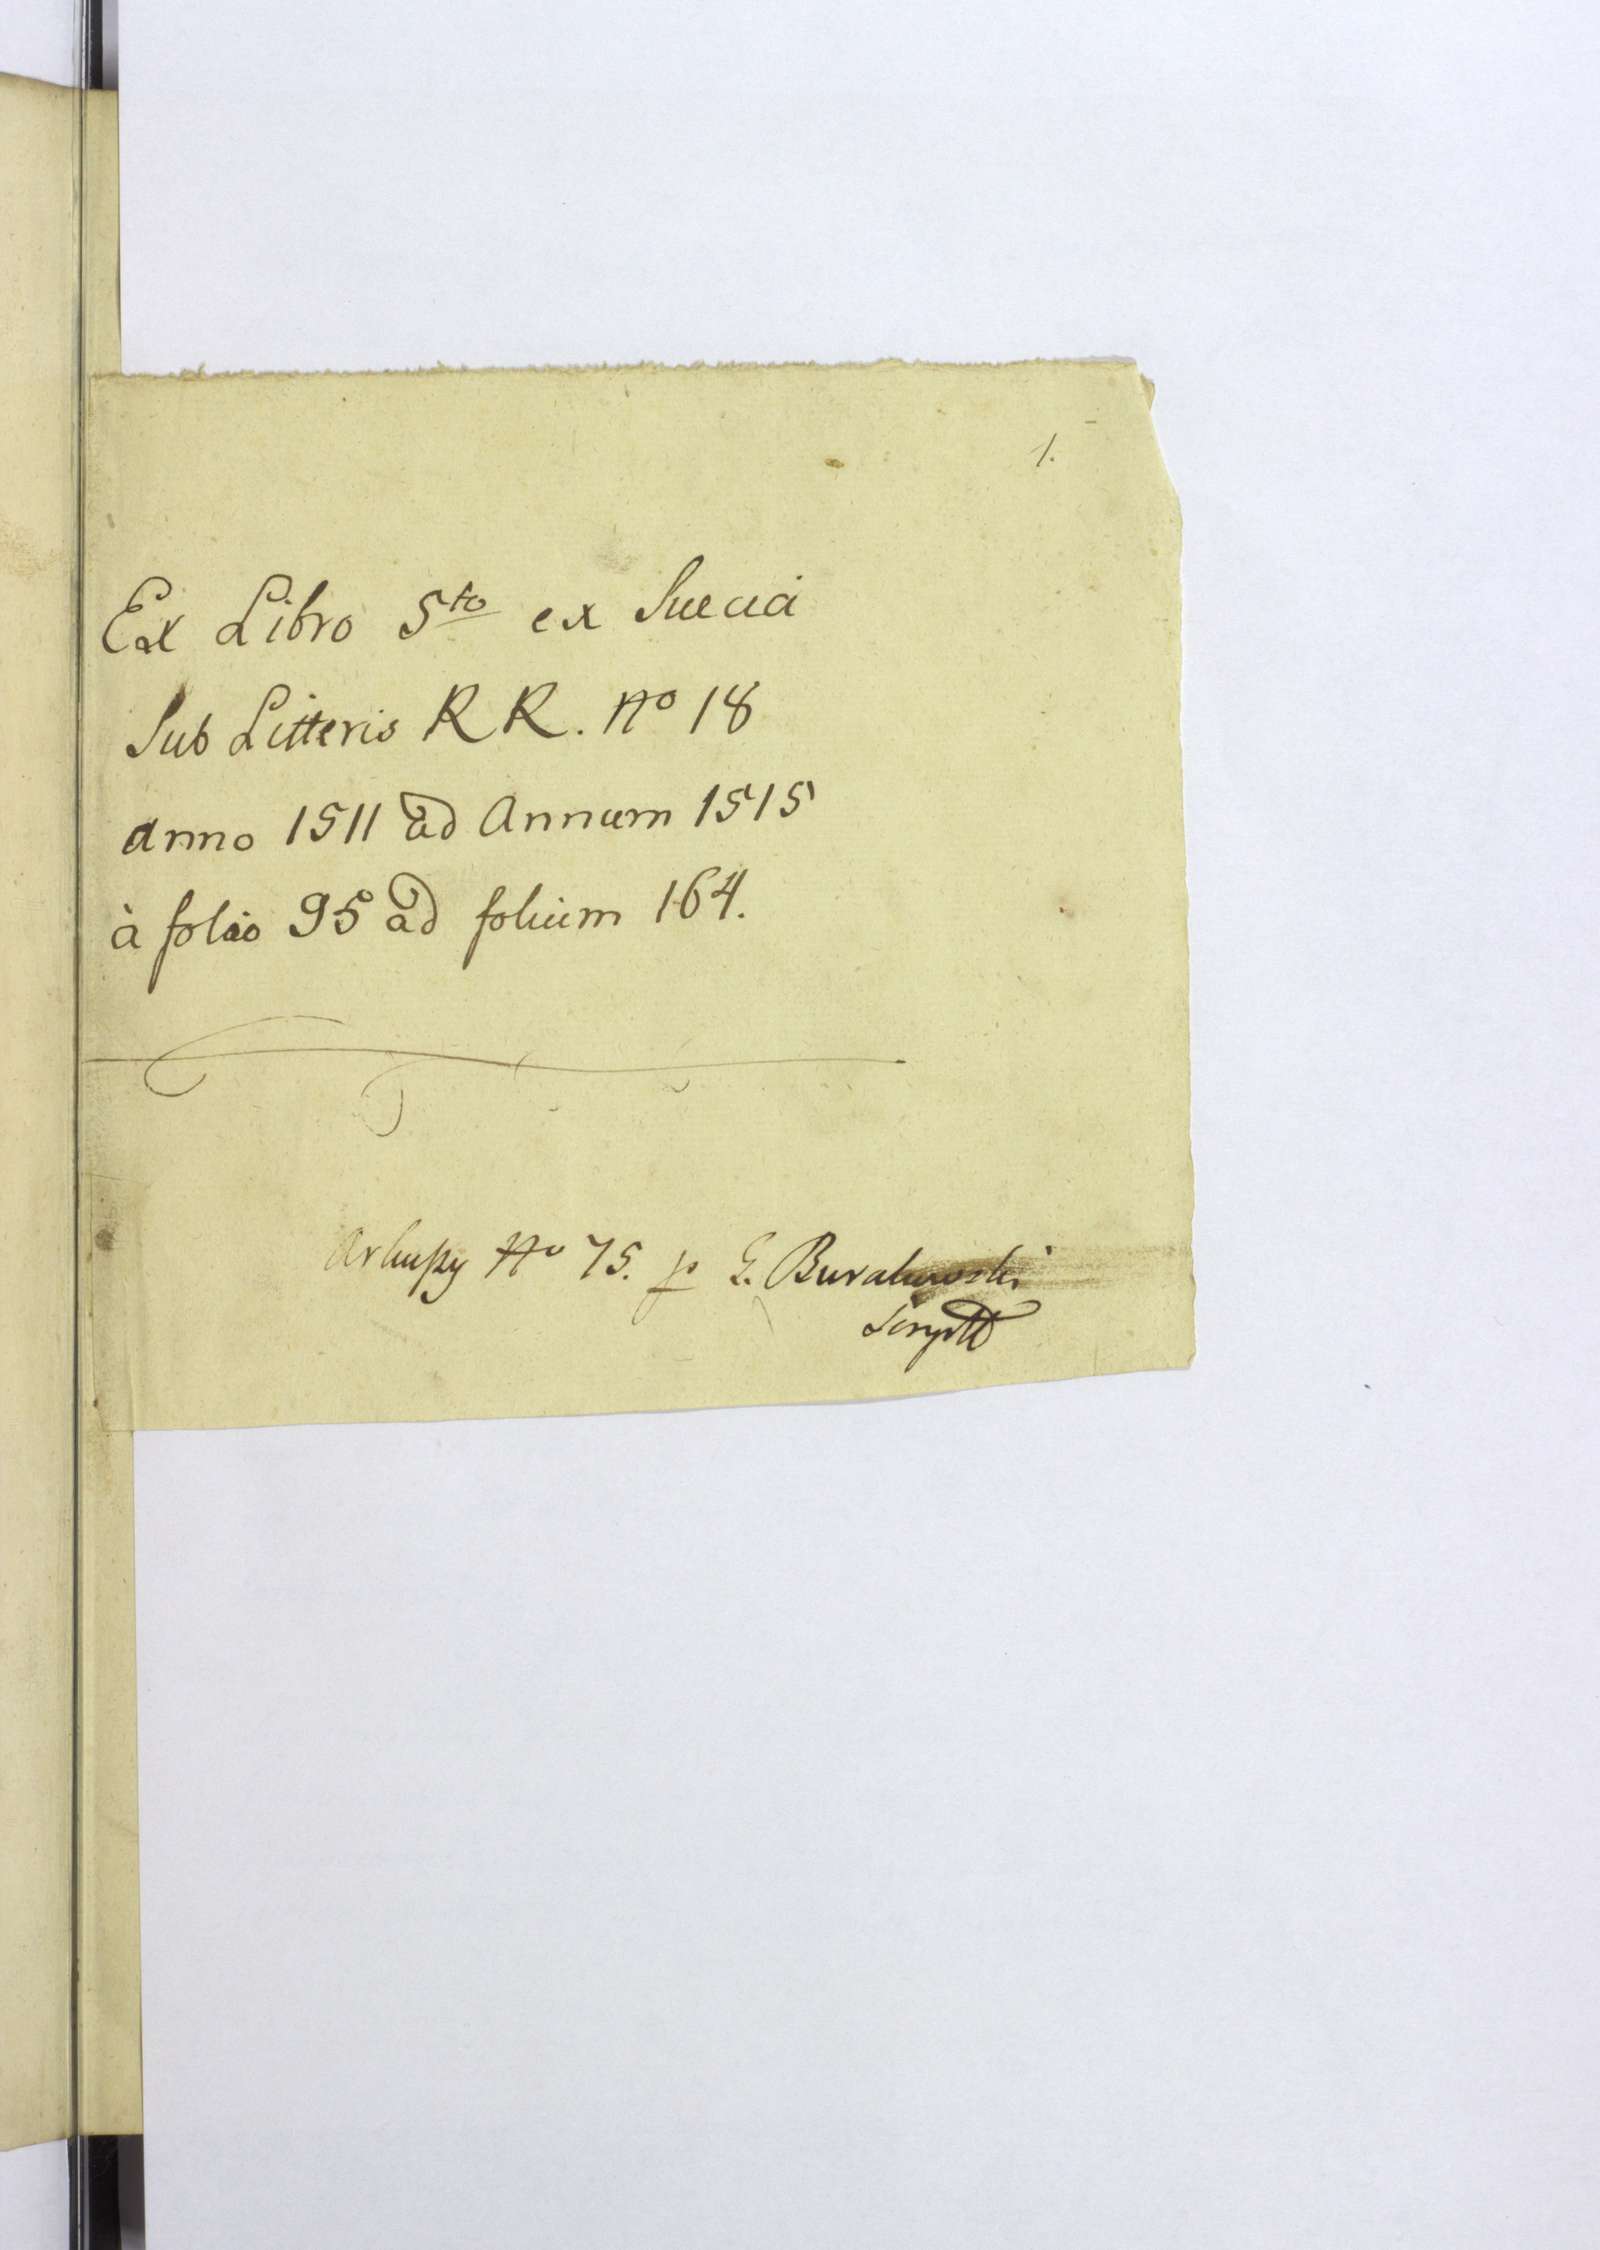 1.
Ex Libro 5to ex Suecia
Sub Litteris RR. No 18
anno 1511 ad Annum 1515
à folio 95 ad folium 164.
Arkuszy No 75. p G. Burakowski